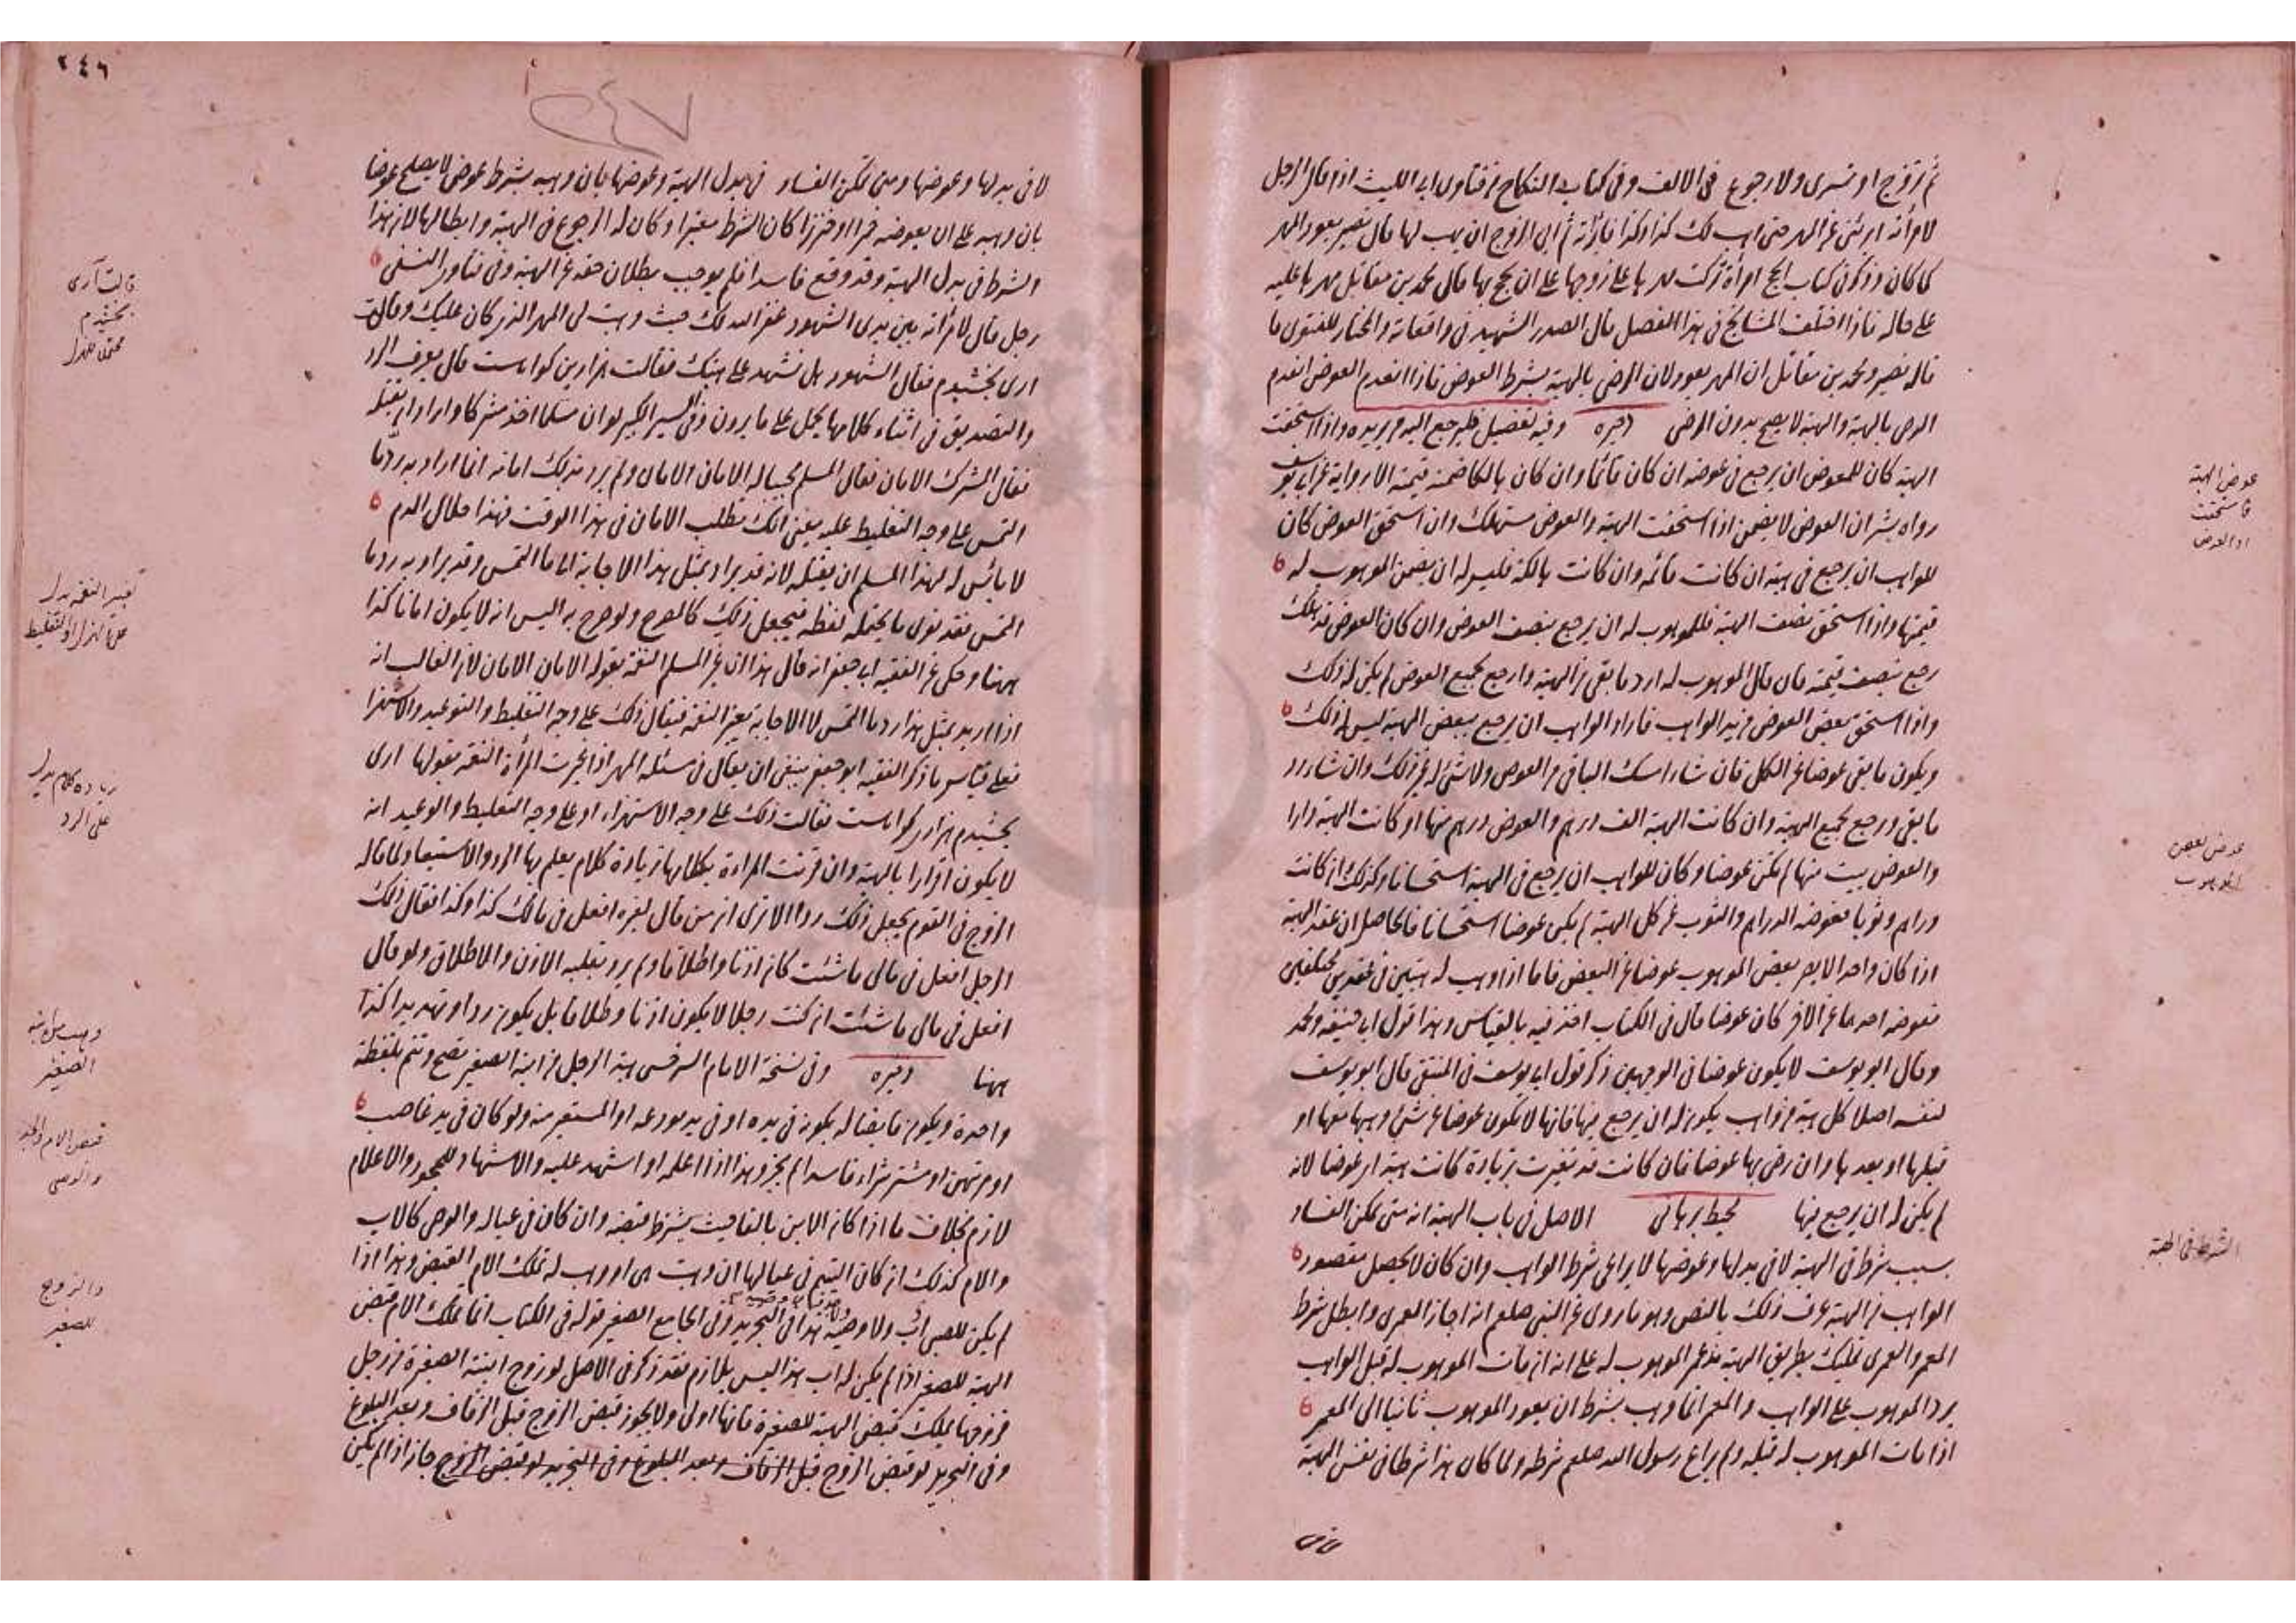 ثم تزوج او تسرى ولا رجوع فى الالف وفى كتاب النكاح من فتاوى ابى الليث اذا قال الرجل
لامرأته ابرئنى عن المهر حتى اهب لك كذا وكذا فابرأته ثم ابى الزوج ان يهب لها قال نصير يعود المهر
كما كان وذكر فى كتاب الحج امرأة تركت مهرها على زوجها على ان يحج بها قال محمد بن مقاتل مهرها عليه
على حاله فاذا اختلف المشايخ فى هذا الفصل قال الصدر الشهيد فى واقعاته والمختار للفتوى ما
قاله نصير ومحمد بن مقاتل ان المهر يعود لان الرضى بالهبة بشرط العوض فاذا انعدم العوض انعدم
الرضى بالهبة والهبة لا يصح بدون الرضى ذخيره وفيه تفصيل فليرجع اليه من يريده واذا استحقت
الهبة كان للمعوض ان يرجع فى عوضه ان كان قائما وان كان هالكا ضمنه قيمته الا رواية عن ابى يوسف
رواه بشر ان العوض لا يضمن اذا استحقت الهبة والعوض مستهلك وان استحق العوض كان
للواهب ان يرجع فى هبته ان كانت قائمة وان كانت هالكة فليس له ان يضمن الموهوب له
قيمتها واذا استحق نصف الهبة فللموهوب له ان يرجع بنصف العوض وان كان العوض قد هلك
رجع بنصف قيمته فان قال الموهوب له ارد ما بقى من الهبة وارجع بجميع العوض لم يكن له ذلك
واذا استحق بعض العوض من يد الواهب فاراد الواهب ان يرجع ببعض الهبة ليس له ذلك
ويكون ما بقى عوضا عن الكل فان شاء امسك الباقى من العوض ولا شئ له غير ذلك وان شاء رد
ما بقى ورجع بجميع الهبة وان كانت الهبة الف درهم والعوض درهم منها او كانت الهبة دارا
والعوض بيت منها لم يكن عوضا وكان للواهب ان يرجع فى الهبة استحسانا وكذلك ان كانت
دراهم وثوبا فعوضه الدراهم والثوب عن كل الهبة لم يكن عوضا استحسانا فالحاصل ان عقد الهبة
اذا كان واحدا لا يصر بعض الموهوب عوضا عن البعض فاما اذا وهب له هبتين فى عقدين مختلفين
فعوضه احدهما عن الآخر كان عوضا قال فى الكتاب اخذ فيه بالقياس وهذا قول ابى حنيفة ومحمد
وقال ابو يوسف لا يكون عوضا فى الوجهين ذكر قول ابى يوسف فى المنتقى قال ابو يوسف
لنفسه اصلا كل هبة من واهب يكون له ان يرجع فيها فانها لا يكون عوضا عن شئ وهبها معها او
قبلها او بعدها وان رضى بها عوضا فان كانت قد تغيرت بزيادة كانت هبة او عوضا لانه
لم يكن له ان يرجع فيها محيط برهانى الاصل فى باب الهبة انه متى تمكن الفساد
بسبب شرط فى الهبة لا فى بدلها وعوضها لا يراعى شرط الواهب وان كان لا يحصل مقصود
الواهب من الهبة عرف ذلك بالنص وهو ما روى عن النبى صلعم انه اجاز العمرى وابطل شرط
المعمر والعمرى تمليك بطريق الهبة مدة عمر الموهوب له على انه ان مات الموهوب له قبل الواهب
يرد الموهوب على الواهب والمعمر انما وهب بشرط ان يعود الموهوب ثانيا الى المعمر
اذا مات الموهوب له قبله ولم يراع رسول الله صلعم شرطه ولما كان هذا شرطا فى نفس الهبة
عوض الهبة
فاستحقت
او العوض
عوض بعض
الموهوب
الشرط فى الهبة
لا فى
٢٤٦
٢٤٧
لا فى بدلها وعوضها ومتى تمكن الفساد فى بدل الهبة وعوضها بان وهبه بشرط عوض لا يصلح عوضا
بان وهبه على ان يعوضه خمرا او خنزيرا كان الشرط معتبرا وكان له الرجوع فى الهبة وابطالها لان هذا
الشرط فى بدل الهبة وقد وقع فاسدا فلم يوجب بطلان حقه عن الهبة وفى فتاوى النسفى
رجل قال لامرأته بين يدى الشهود غفر الله لك حيث وهبت لى المهر الذى كان عليك وقالت
آرى بخشيدم فقال الشهود هل نشهد على هبتك فقالت هزار بن كواه است قال يعرف الرد
والتصديق فى اثناء كلامها يحمل على ما يرون وفى السير الكبير لو ان مسلما اخذ مشركا واراد ان يقتله
فقال المشرك الامان فقال المسلم مجيبا له الامان الامان ولم يرد بذلك امانه انما اراد به ردّ ما
التمس على وجه التغليظ عليه يعنى انك تطلب الامان فى هذا الوقت فهذا حلال الدم
لا بأس لهذا المسلم ان يقتله لانه قد يراد بمثل هذا الاجابة الى ما التمس وقد يراد به رد ما
التمس فقد نوى ما يحتمله لفظه فيجعل ذلك كالمصرح ولو صرح به اليس انه لا يكون امانا كذا
ههنا وحكى عن الفقيه ابى جعفر انه قال هذا اذا غير المسلم النغمة بقوله الامان الامان لان الغالب انه
اذا اريد بمثل هذا رد ما التمس لا الاجابة تغير النغمة فيقال ذلك على وجه التغليظ والتوعيد والاستهزاء
فعلى قياس ما ذكر الفقيه ابو جعفر ينبغى ان يقال فى مسئلة المهر اذا غيرت المرأة النغمة بقولها آرى
بخشيدم هزار كواه است فقالت ذلك على وجه الاستهزاء او على وجه التغليظ والوعيد انه
لا يكون اقرارا بالهبة وان قرنت المرأة بكلامها زيادة كلام يعلم بها الرد والاستبعاد لما قاله
الزوج فى القوم يجعل ذلك ردا الا ترى ان من قال لغيره افعل فى مالك كذا وكذا فقال ذلك
الرجل افعل فى مالى ما شئت كان اذنا واطلاقا ولم يرد بغلبة الاذن والاطلاق ولو قال
افعل فى مالى ما شئت ان كنت رجلا لا يكون اذنا واطلاقا بل يكون ردا وتهديدا كذا
ههنا ذخيره وفى نسخة الامام السرخسى هبة الرجل من ابنه الصغير تصح وتتم بلفظة
واحدة ويكون قابضا له بكونه فى يده او فى يد مودعه او المستعير منه ولو كان فى يد غاصب
او مرتهن او مشتر شراء فاسدا لم يجز وهذا اذا اعلمه او اشهد عليه والاشهاد للجحود والاعلام
لازم بخلاف ما اذا كان الابن بالغا حيث يشترط قبضه وان كان فى عياله والوصى كالاب
والام كذلك ان كان اليتيم فى عيالها ان وهبت هى او وهب له تملك الام القبض وهذا اذا
لم يكن للصبى اب ولا وصيه هذا فى التجريد وفى الجامع الصغير قوله فى الكتاب انما تملك الام قبض
الهبة للصغير اذا لم يكن له اب هذا ليس بلازم فقد ذكر فى الاصل لو زوج ابنته الصغيرة من رجل
فزوجها يملك قبض الهبة للصغيرة فانها اولى ولا يجوز قبض الزوج قبل الزفاف وبعد البلوغ
وفى التجريد لو قبض الزوج قبل الزفاف وبعد البلوغ وفى التجريد لو قبض الزوج جاز اذا لم يكن
قالت آرى
بخشيدم
تغيير النغمة يدل
على الهزل او التغليظ
زيادة كلام يدل
على الرد
الصغير
قبض الام والجد
والوصى
والزوج
للصغير